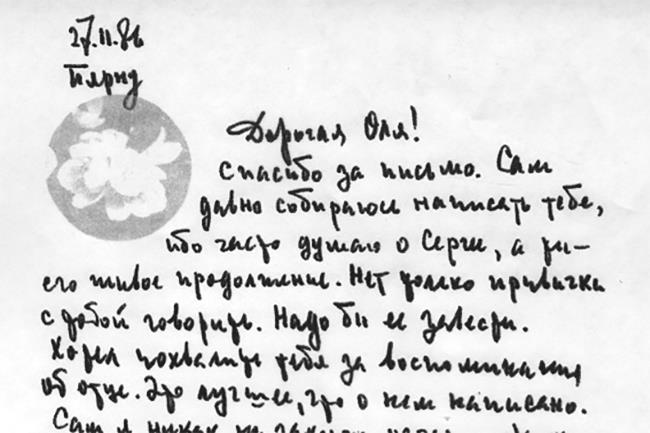 27.11.86
Пярну
Дорогая Оля!
спасибо за письмо. Сам
давно собираюсь написать тебе,
ибо часто думаю о Сергее, а ты —
его живое продолжение. Нет только привычки
с тобой говорить. Надо бы ее завести.
Хотел похвалить тебя за воспоминания
об отце. Это лучшее, что о нем написано.
Сам я никак не